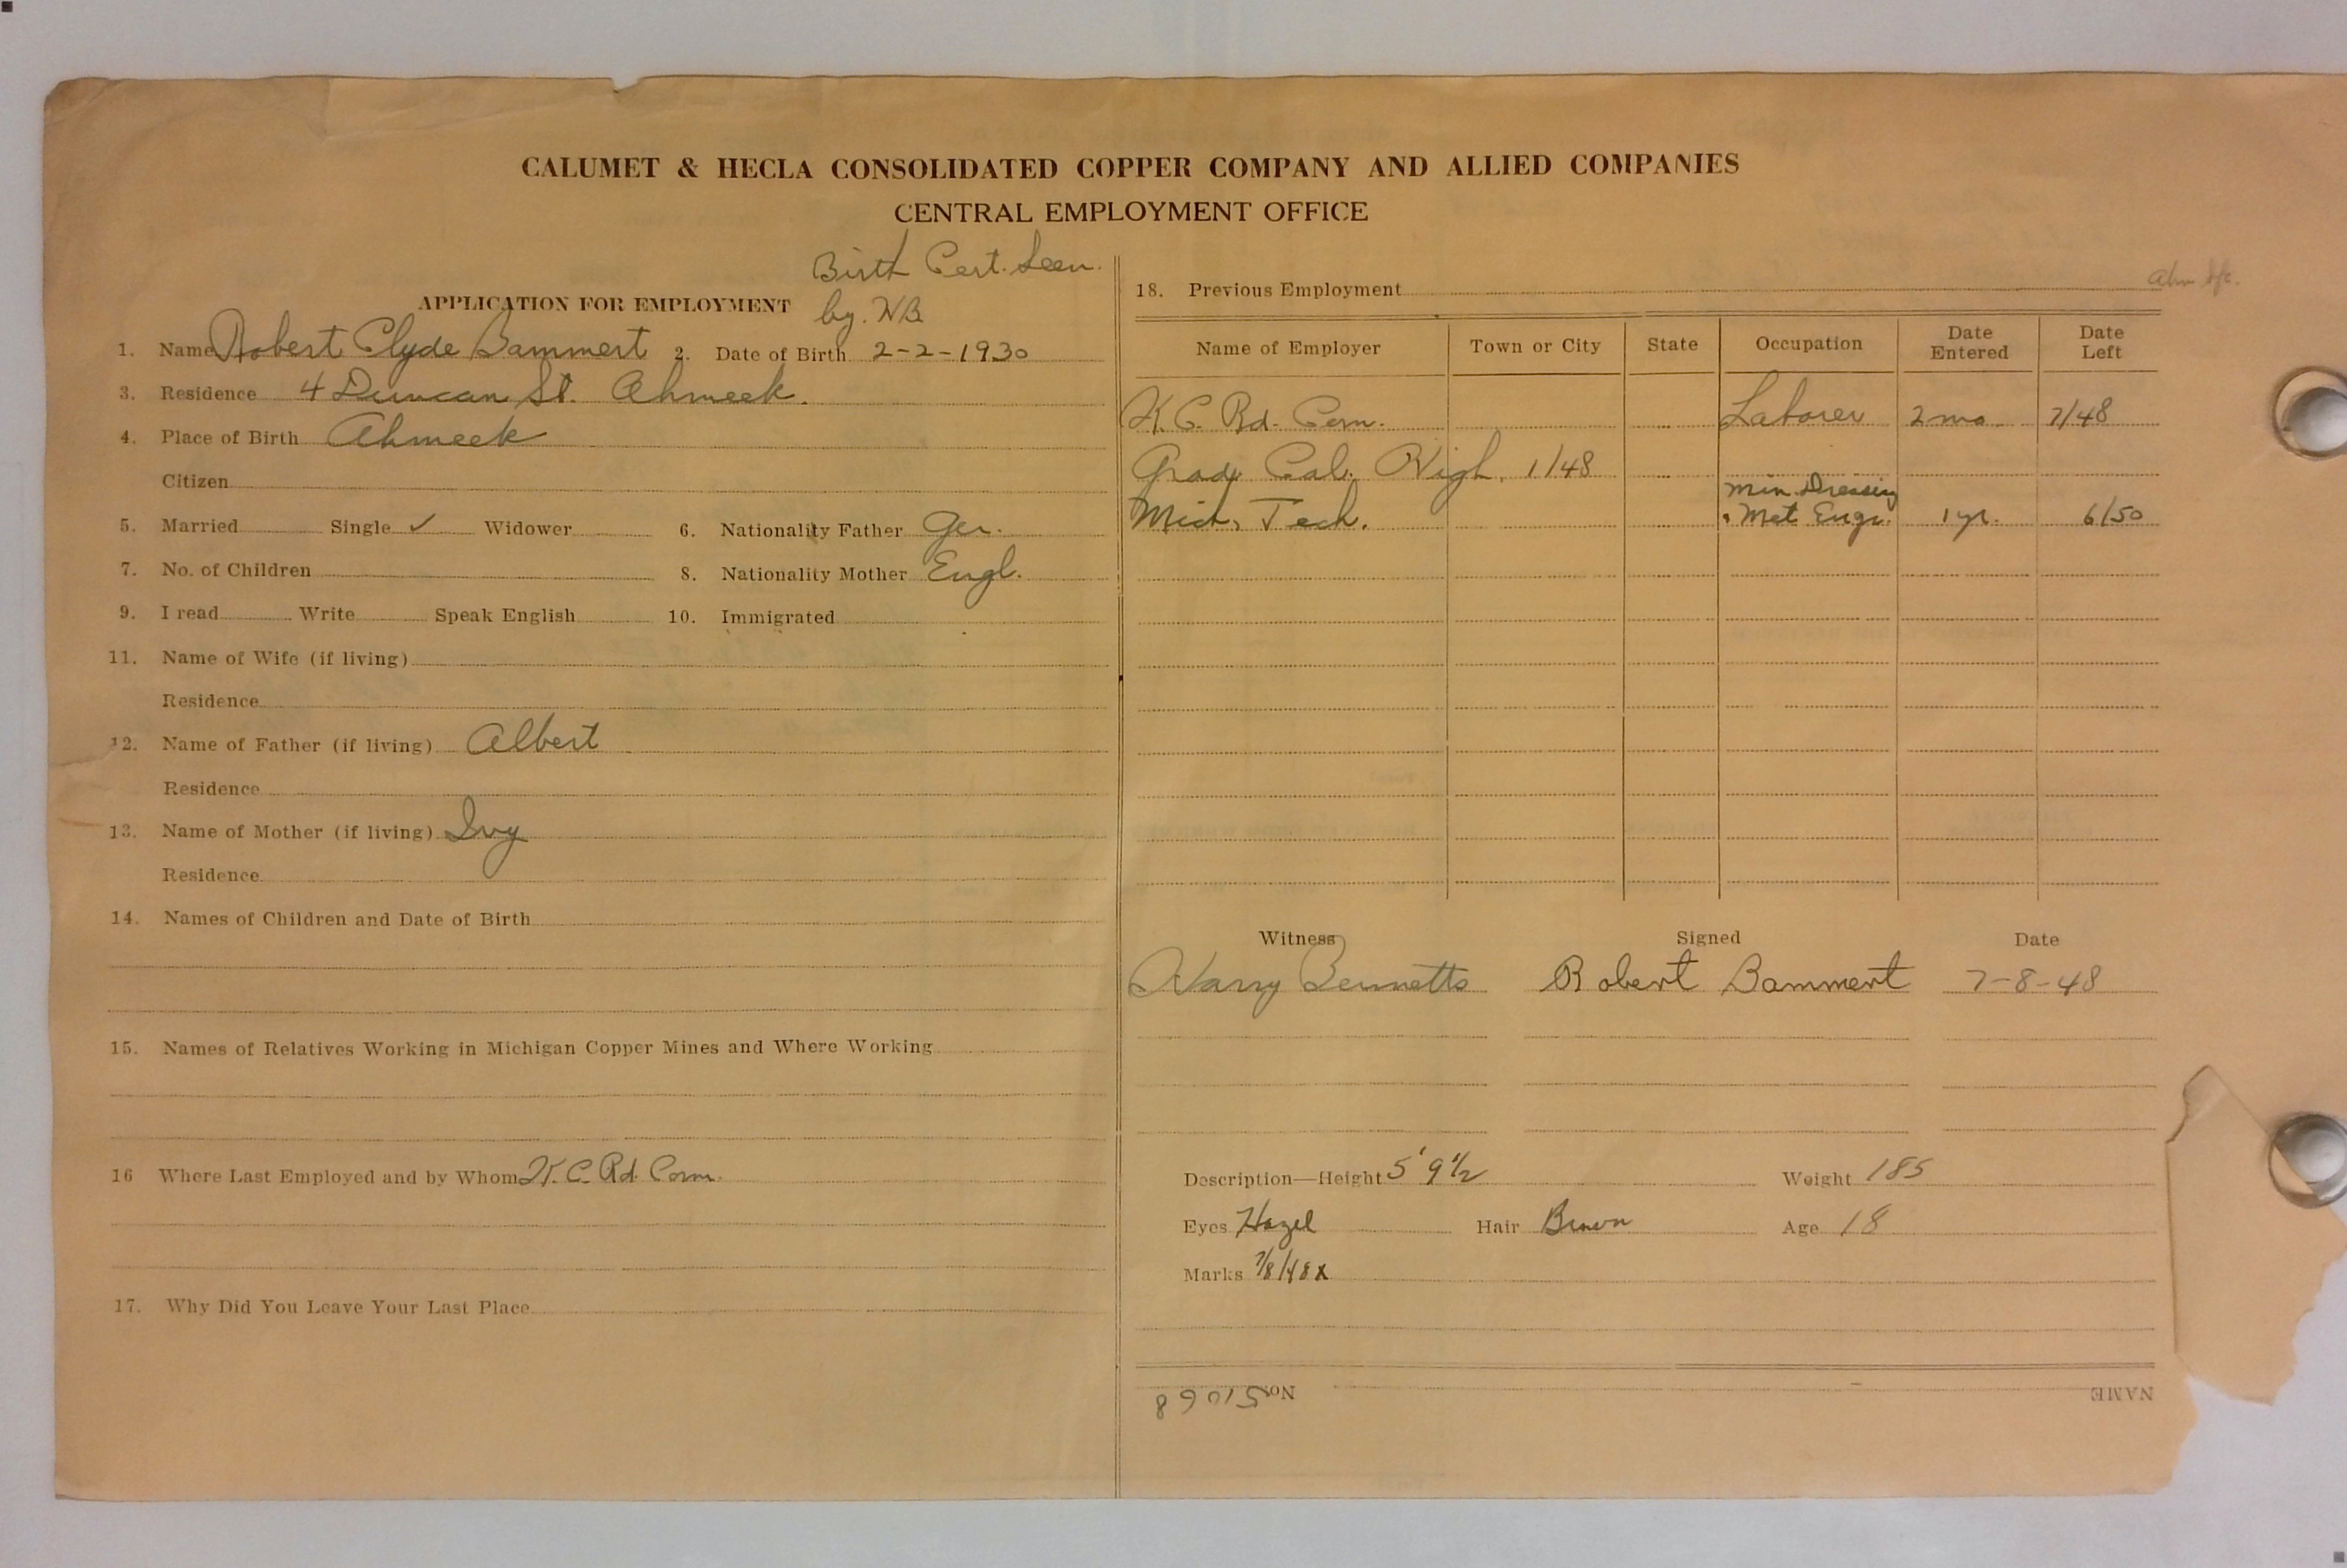 CALUMET & HECLA CONSOLIDATED COPPER COMPANY AND ALLIED COMPANIES
CENTRAL EMPLOYMENT OFFICE
Birth Cert. Seen.
APPLICATION FOR EMPLOYMENT by. HB
1. Name Robert Clyde Bammert 2. Date of Birth 2-2-1930
3. Residence 4 Duncan St. Ahmeek.
4. Place of Birth Ahmeek
Citizen
5. Married Single ✓ Widower 6. Nationality Father Ger.
7. No. of Children 8. Nationality Mother Engl.
9. I read Write Speak English 10. Immigrated
11. Name of Wife (if living)
Residence
12. Name of Father (if living) Albert
Residence
13. Name of Mother (if living) Ivy
Residence
14. Names of Children and Date of Birth
15. Names of Relatives Working in Michigan Copper Mines and Where Working
16 Where Last Employed and by Whom K. C. Rd. Com.
17. Why Did You Leave Your Last Place
18. Previous Employment
Name of Employer Town or City State Occupation Date Entered Date Left
K. C. Rd. Com. Laborer 2 mo. 7/48
Grad. Cal. High. 1/48
Min. Dressing
Mich. Tech. Met Engr. 1 yr. 6/50
Witness Signed Date
Harry Bennetts Robert Bammert 7-8-48
Description—Height 5' 9 1/2 Weight 185
Eyes Hazel Hair Brown Age 18
Marks 7/8/48 X
NAME No. 51068